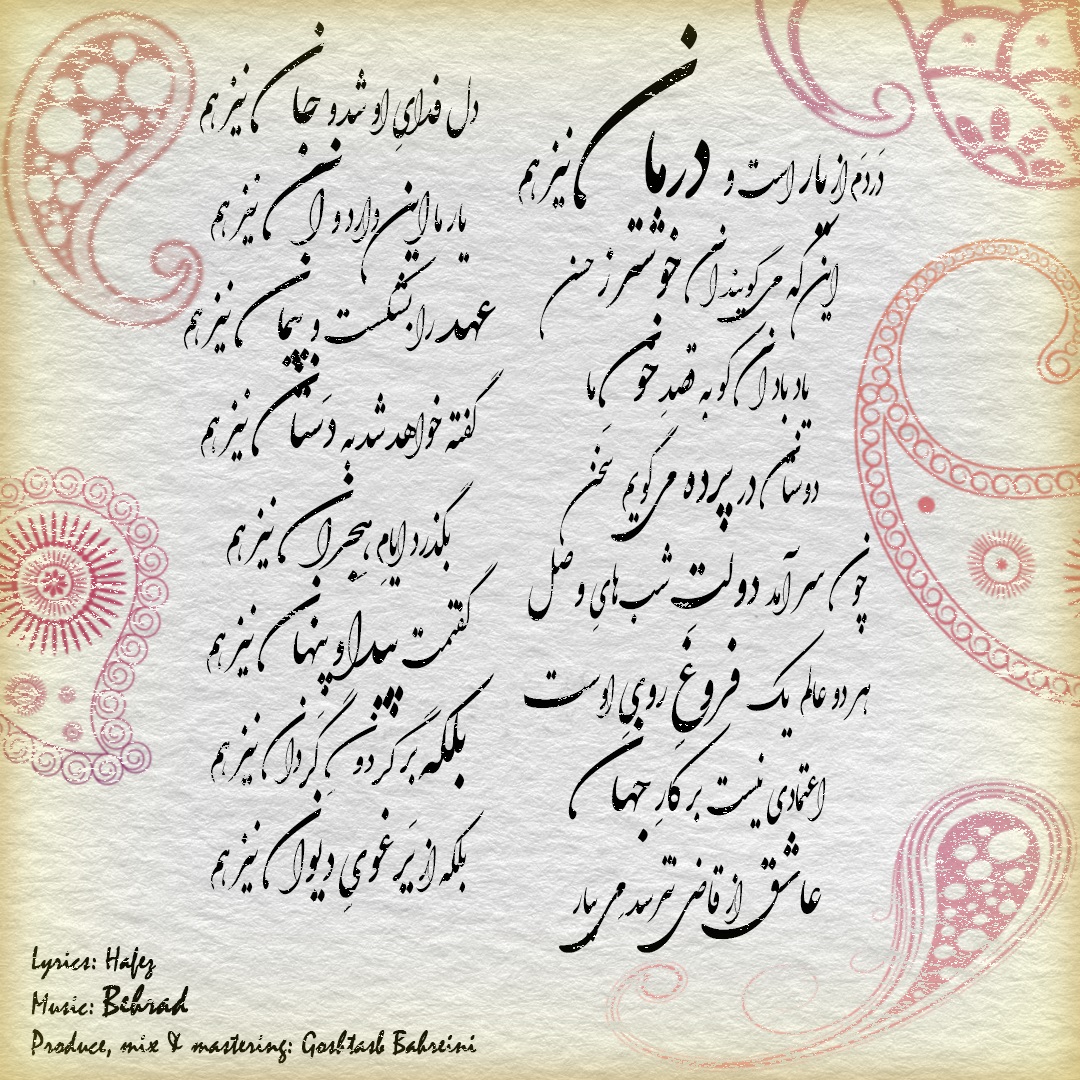 دَردَم از یار است و درمان نیز هم
دل فدایِ او شد و جان نیز هم
این که می‌گویند آن خوشتر ز حسن
یار ما این دارد و آن نیز هم
یاد باد آن کو به قصدِ خون ما
عهد را بشکست و پیمان نیز هم
دوستان در پرده می‌گویم سَخن
گفته خواهد شد به دَستان نیز هم
چون سر آمد دولتِ شب‌هایِ وصل
بگذرد ایامِ هِجران نیز هم
هر دو عالم یک فروغِ رویِ اوست
گفتمت پیدا و پنهان نیز هم
اعتمادی نیست بر کارِ جهان
بلکه بر گَردونِ گردان نیز هم
عاشق از قاضی نترسد می بیار
بلکه از یَرغویِ دیوان نیز هم
Lyrics: Hafez
Music: Behrad
Produce, mix & mastering: Goshtasb Bahreini